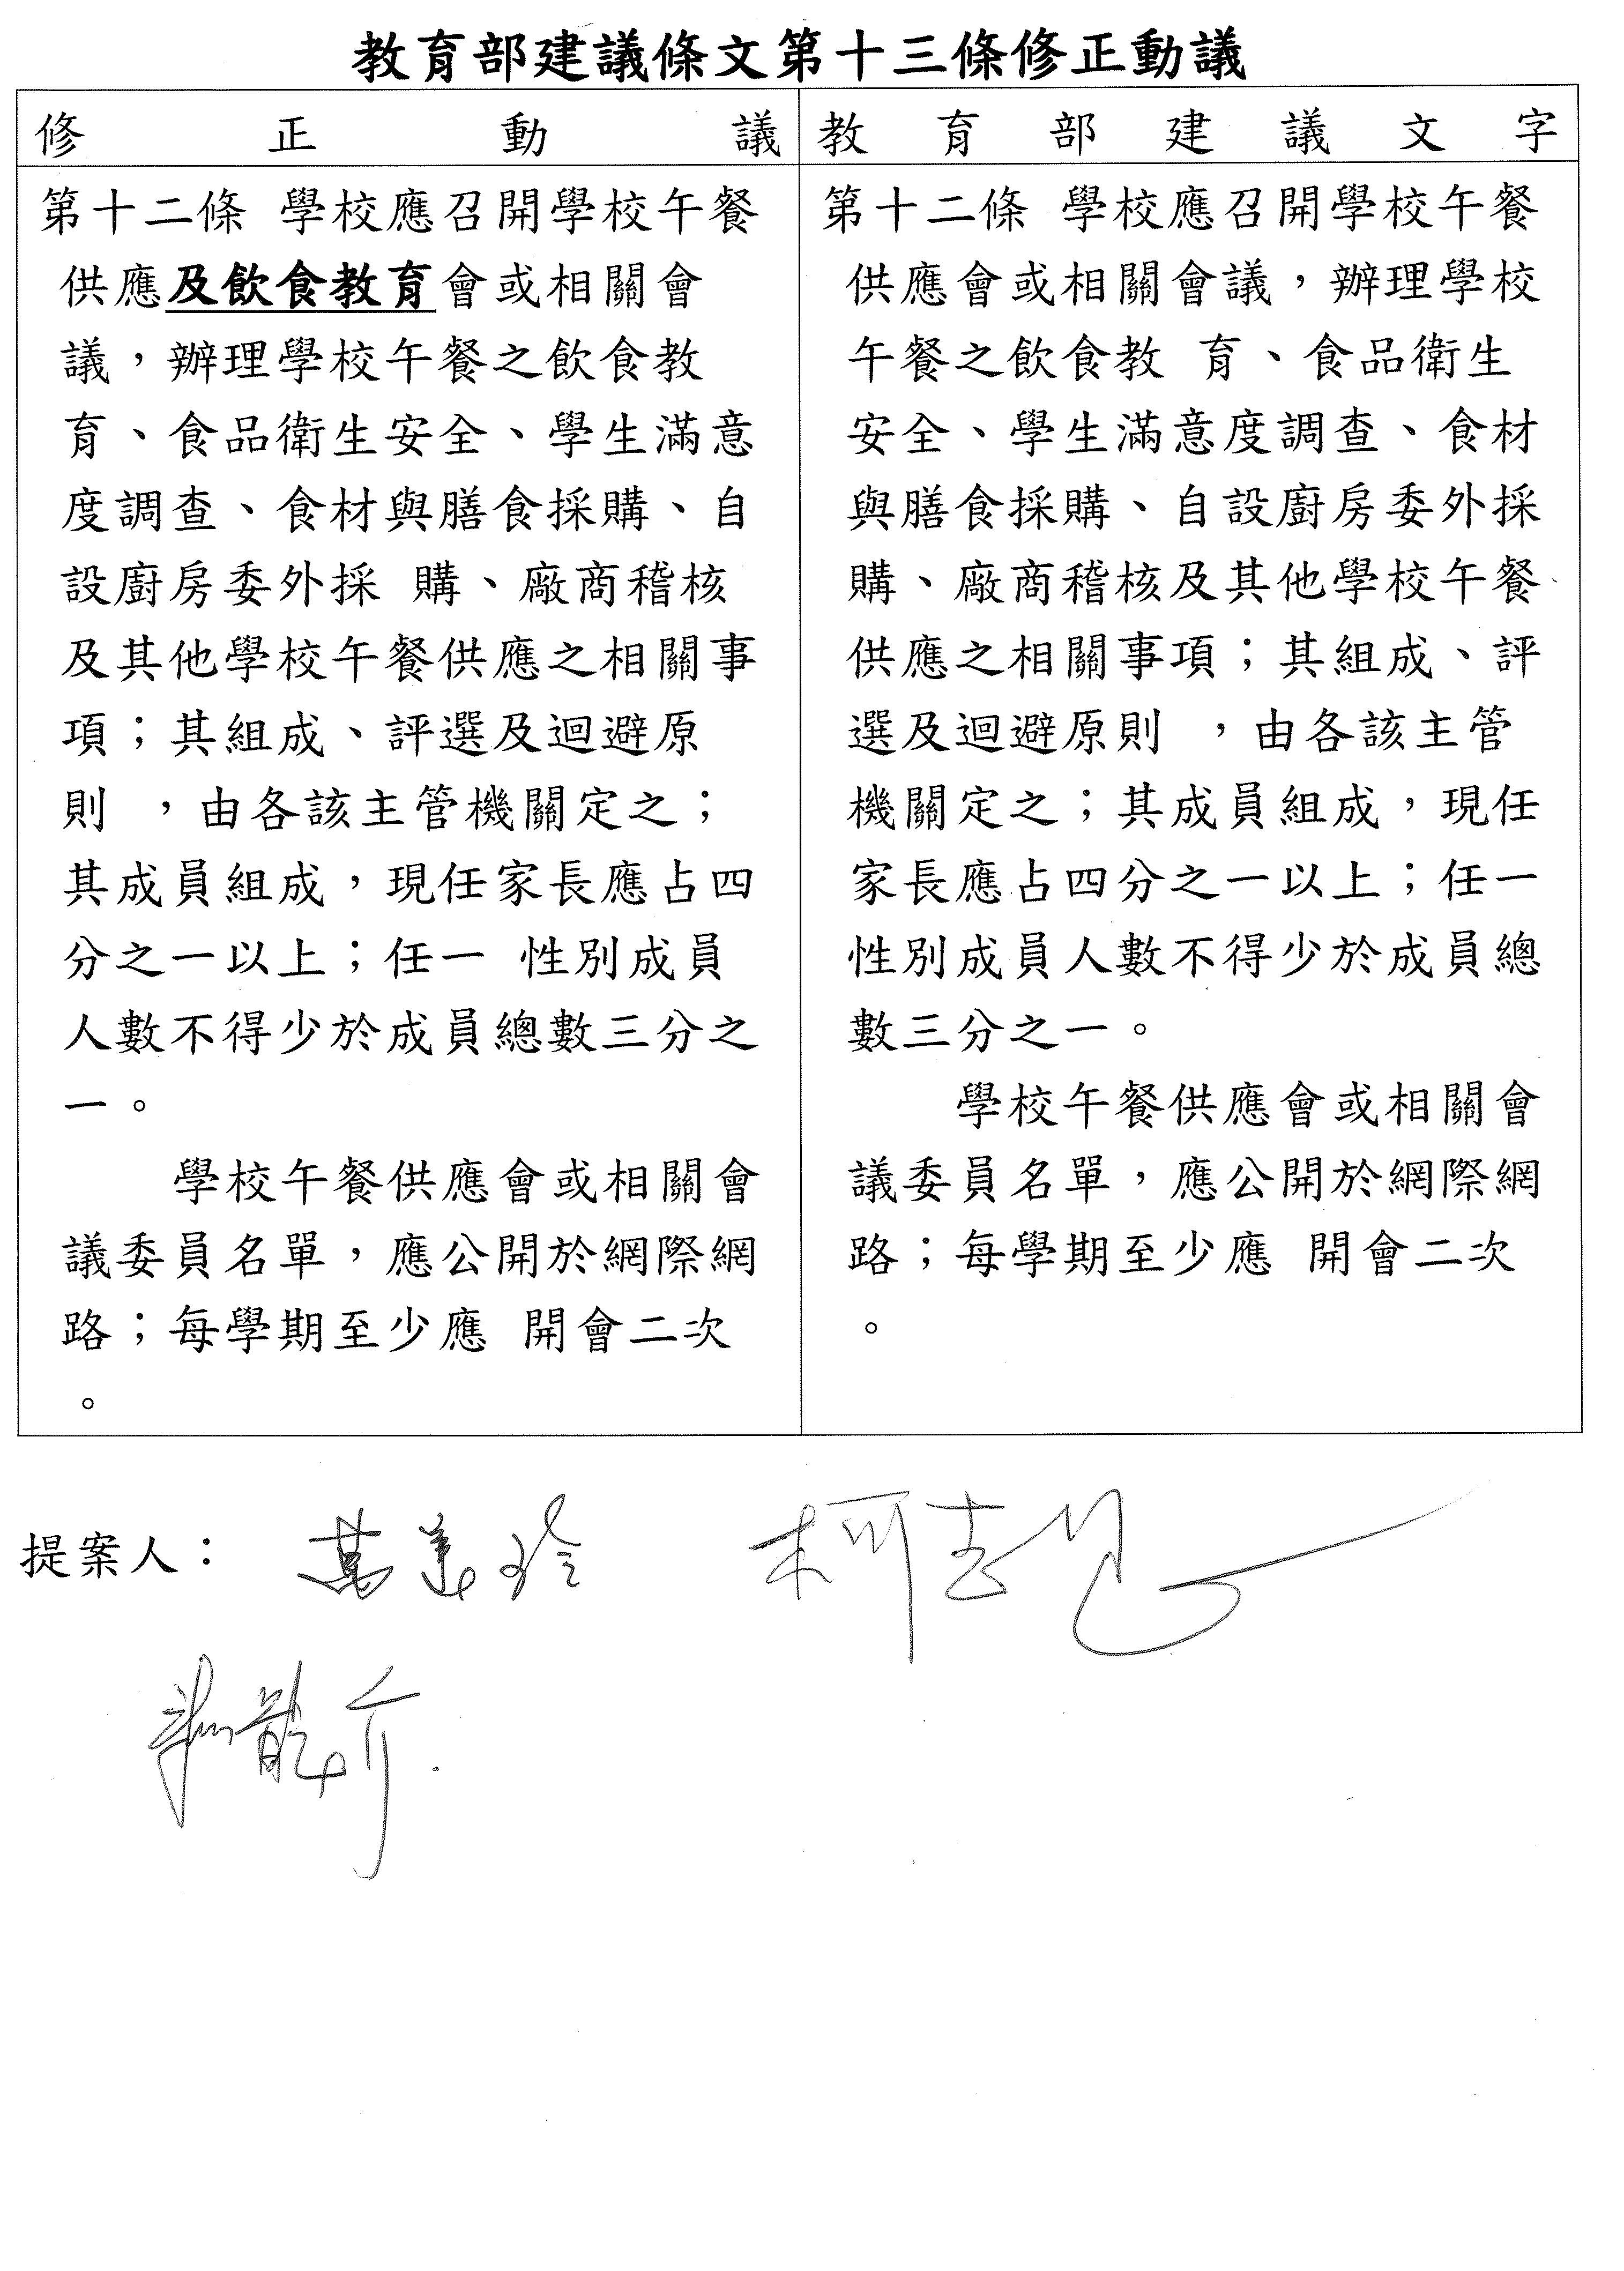 教育部建議條文第十三條修正動議
修正動議
第十二條 學校應召開學校午餐
供應及飲食教育會或相關會
議，辦理學校午餐之飲食教
育、食品衛生安全、學生滿意
度調查、食材與膳食採購、自
設廚房委外採 購、廠商稽核
及其他學校午餐供應之相關事
項；其組成、評選及迴避原
則 ，由各該主管機關定之；
其成員組成，現任家長應占四
分之一以上；任一 性別成員
人數不得少於成員總數三分之
一。
學校午餐供應會或相關會
議委員名單，應公開於網際網
路；每學期至少應 開會二次
。
教育部建議文字
第十二條 學校應召開學校午餐
供應會或相關會議，辦理學校
午餐之飲食教 育、食品衛生
安全、學生滿意度調查、食材
與膳食採購、自設廚房委外採
購、廠商稽核及其他學校午餐
供應之相關事項；其組成、評
選及迴避原則 ，由各該主管
機關定之；其成員組成，現任
家長應占四分之一以上；任一
性別成員人數不得少於成員總
數三分之一。
學校午餐供應會或相關會
議委員名單，應公開於網際網
路；每學期至少應 開會二次
。
提案人： 萬美玲 柯志恩